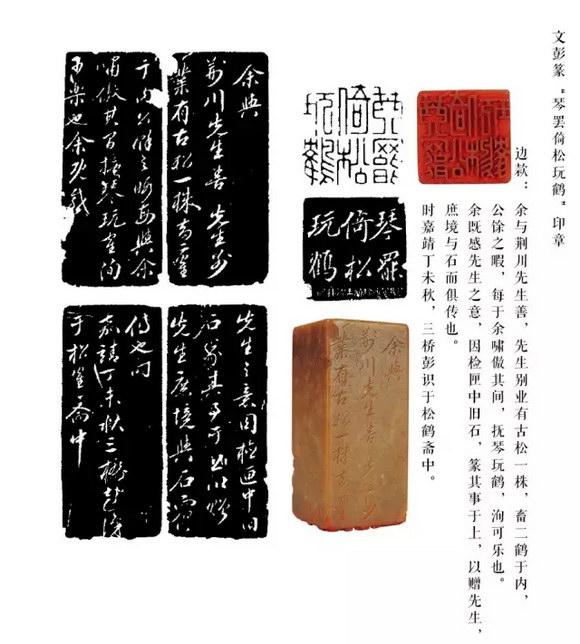 文彭篆“琴罢倚松玩鹤”印章
边款：余与荆川先生善，先生别业有古松一株，畜二鹤于内，
公馀之暇，每于余啸傲其间，抚琴玩鹤，洵可乐也。
余既感先生之意，因检匣中旧石，篆其事于上，以赠先生，
庶境与石而俱传也。
时嘉靖丁未秋，三桥彭识于松鹤斋中。
琴罷
倚松
玩鶴
琴罷
倚松
玩鶴
余與
荊川先生善 先生別
業有古松一株畜二鶴
于内公餘之暇每與余
嘯傲其間撫琴玩鶴洵
可樂也余既感
先生之意因檢匣中旧
石篆其事于上以贈
先生庶境與石而俱
傳也时
嘉靖丁未秋三橋彭識
于松鶴齋中
余與
荊川先生善先生別
業有古松一株畜二鶴